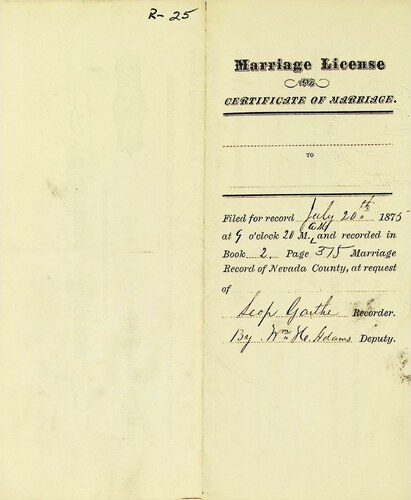 R-25
Marriage License
AND
CERTIFICATE OF MARRIAGE.
TO
Filed for record July 20th 1875
at 9 o'clock 20 M. A.M. and recorded in
Book 2. Page 375 Marriage
Record of Nevada County, at request
of
Leop Garthe Recorder.
By Wm H. Adams Deputy.